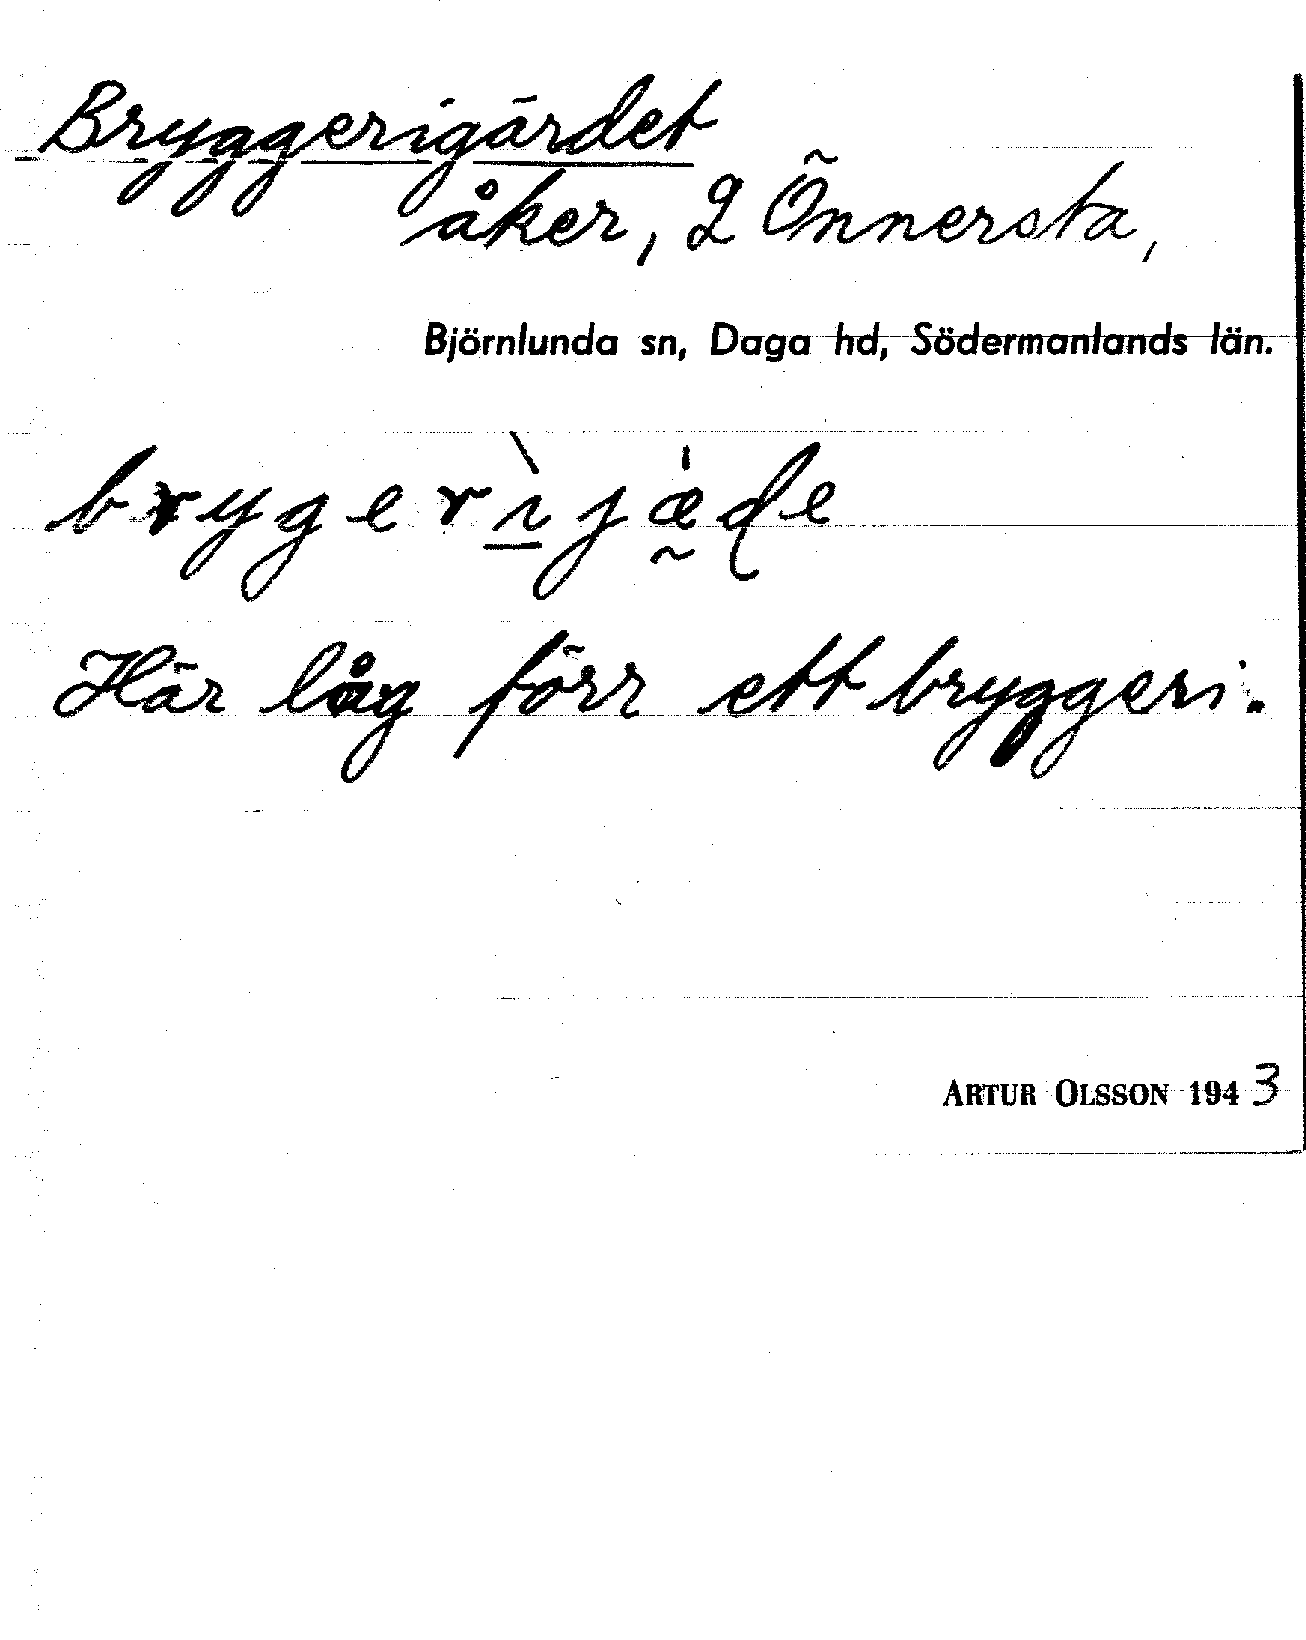 Bryggerigärdet
åker, 2 Önnersta,
Björnlunda sn, Daga hd, Södermanlands län.
brygerìjæ̰ɖe
Här låg förr ett bryggeri.
ARTUR OLSSON 1943